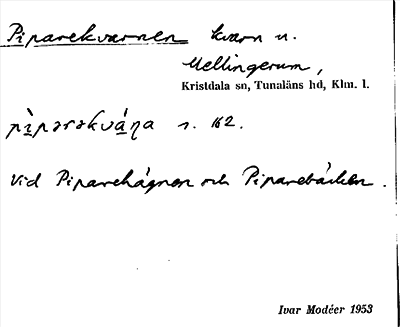 Piparekvarnen kvarn u.
Mellingerum,
Kristdala sn, Tunaläns hd, Klm. l.
pìparəkvá̱ɳa s. 162.
Vid Piparehágnen och Piparebäcken.
Ivar Modéer 1953